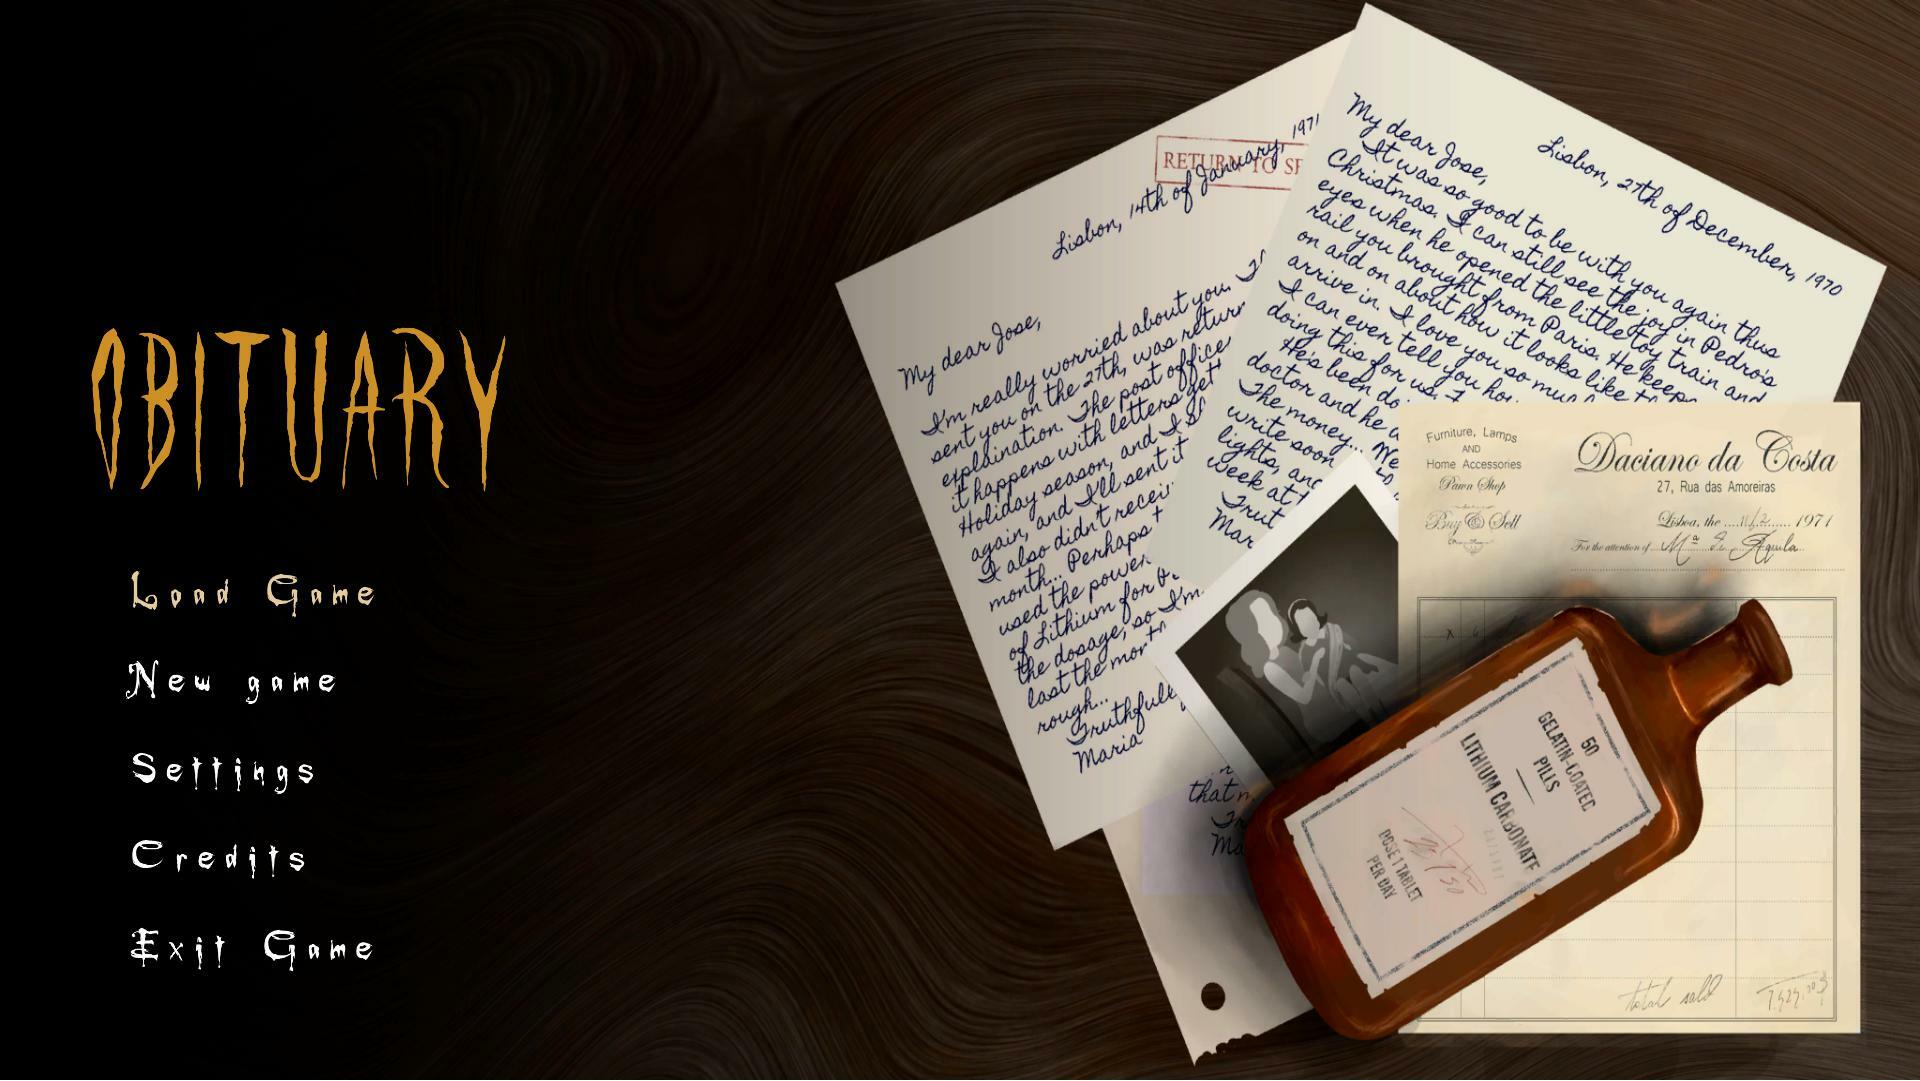 OBITUARY
Load Game
New game
Settings
Credits
Exit Game
RETURN TO SE
Lisbon, 14th of January, 1971
My dear Jose,
I'm really worried about you. I
sent you on the 27th, was return
explaination. The post office
it happens with letters get
Holiday season, and I s
again, and I'll sent it
I also didn't receiv
month... Perhaps t
used the power
of Lithium for P
the dosage, so I'm
last the mor
rough...
Truthfull
Maria
Lisbon, 27th of December, 1970
My dear Jose,
It was so good to be with you again thus
Christmas. I can still see the joy in Pedro's
eyes when he opened the little toy train and
rail you brought from Paris. He keeps
on and on about how it looks like t
arrive in. I love you so muc
I can ever tell you ho
doing this for us. I
He's been do
doctor and he w
The money... We
write soon
lights, and
week at t
Trut
Mar
that m
Tr
Ma
Furniture, Lamps
AND
Home Accessories
Pawn Shop
Buy & Sell
Daciano da Costa
27, Rua das Amoreiras
Lisboa, the 11/2 1971
For the attention of Mª Aquila
total sold
50
GELATIN-COATEC
PILLS
LITHIUM CARBONATE
DOSE 1 TABLET
PER DAY